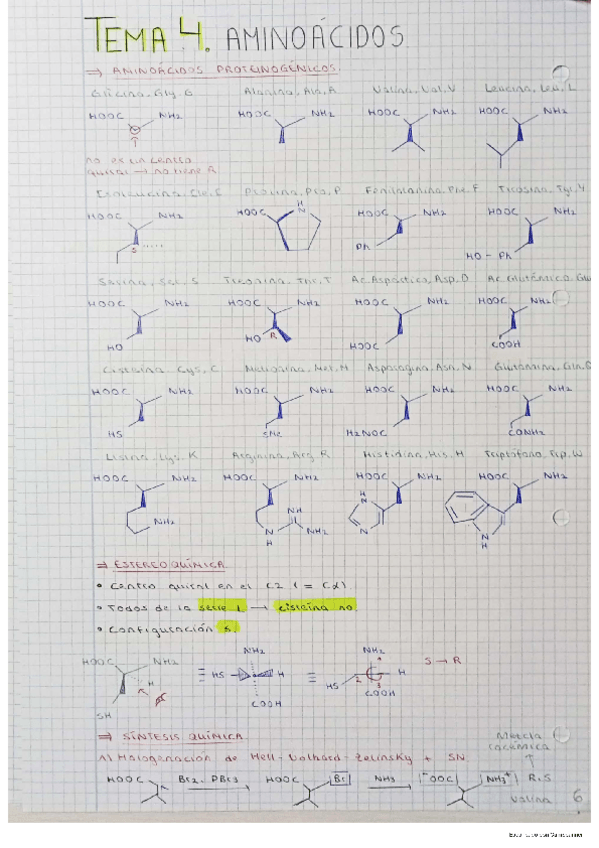 TEMA 4. AMINOÁCIDOS.
⇒ AMINOÁCIDOS PROTEINOGÉNICOS.
Glicina, Gly, G Alanina, Ala, A Valina, Val, V Leucina, Leu, L
HOOC NH2 HOOC NH2 HOOC NH2 HOOC NH2
no es un centro
quiral → no tiene R
Isoleucina, Ile, I Prolina, Pro, P Fenilalanina, Phe, F Tirosina, Tyr, Y
HOOC NH2 HOOC N H HOOC NH2 HOOC NH2
S Ph HO - Ph
Serina, Ser, S Treonina, Thr, T Ac. Aspártico, Asp, D Ac. Glutámico, Glu
HOOC NH2 HOOC NH2 HOOC NH2 HOOC NH2
HO HO R HOOC COOH
Cisteína, Cys, C Metionina, Met, M Asparagina, Asn, N Glutamina, Gln, Q
HOOC NH2 HOOC NH2 HOOC NH2 HOOC NH2
HS SMe H2NOC CONH2
Lisina, Lys, K Arginina, Arg, R Histidina, His, H Triptófano, Trp, W
HOOC NH2 HOOC NH2 HOOC NH2 HOOC NH2
NH2 N H NH NH2 H N N N H
⇒ ESTEREOQUÍMICA
• Centro quiral en el C2 (= Cα)
• Todos de la serie L → cisteína no
• Configuración S.
HOOC NH2 H SH ≡ NH2 HS H COOH ≡ NH2 HS 2 3 H COOH S → R
⇒ SÍNTESIS QUÍMICA
Mezcla
racémica
1) Halogenación de Hell-Volhard-Zelinsky + SN
HOOC Br2, PBr3 HOOC Br NH3 ⁻OOC NH3⁺ R,S
Valina 6